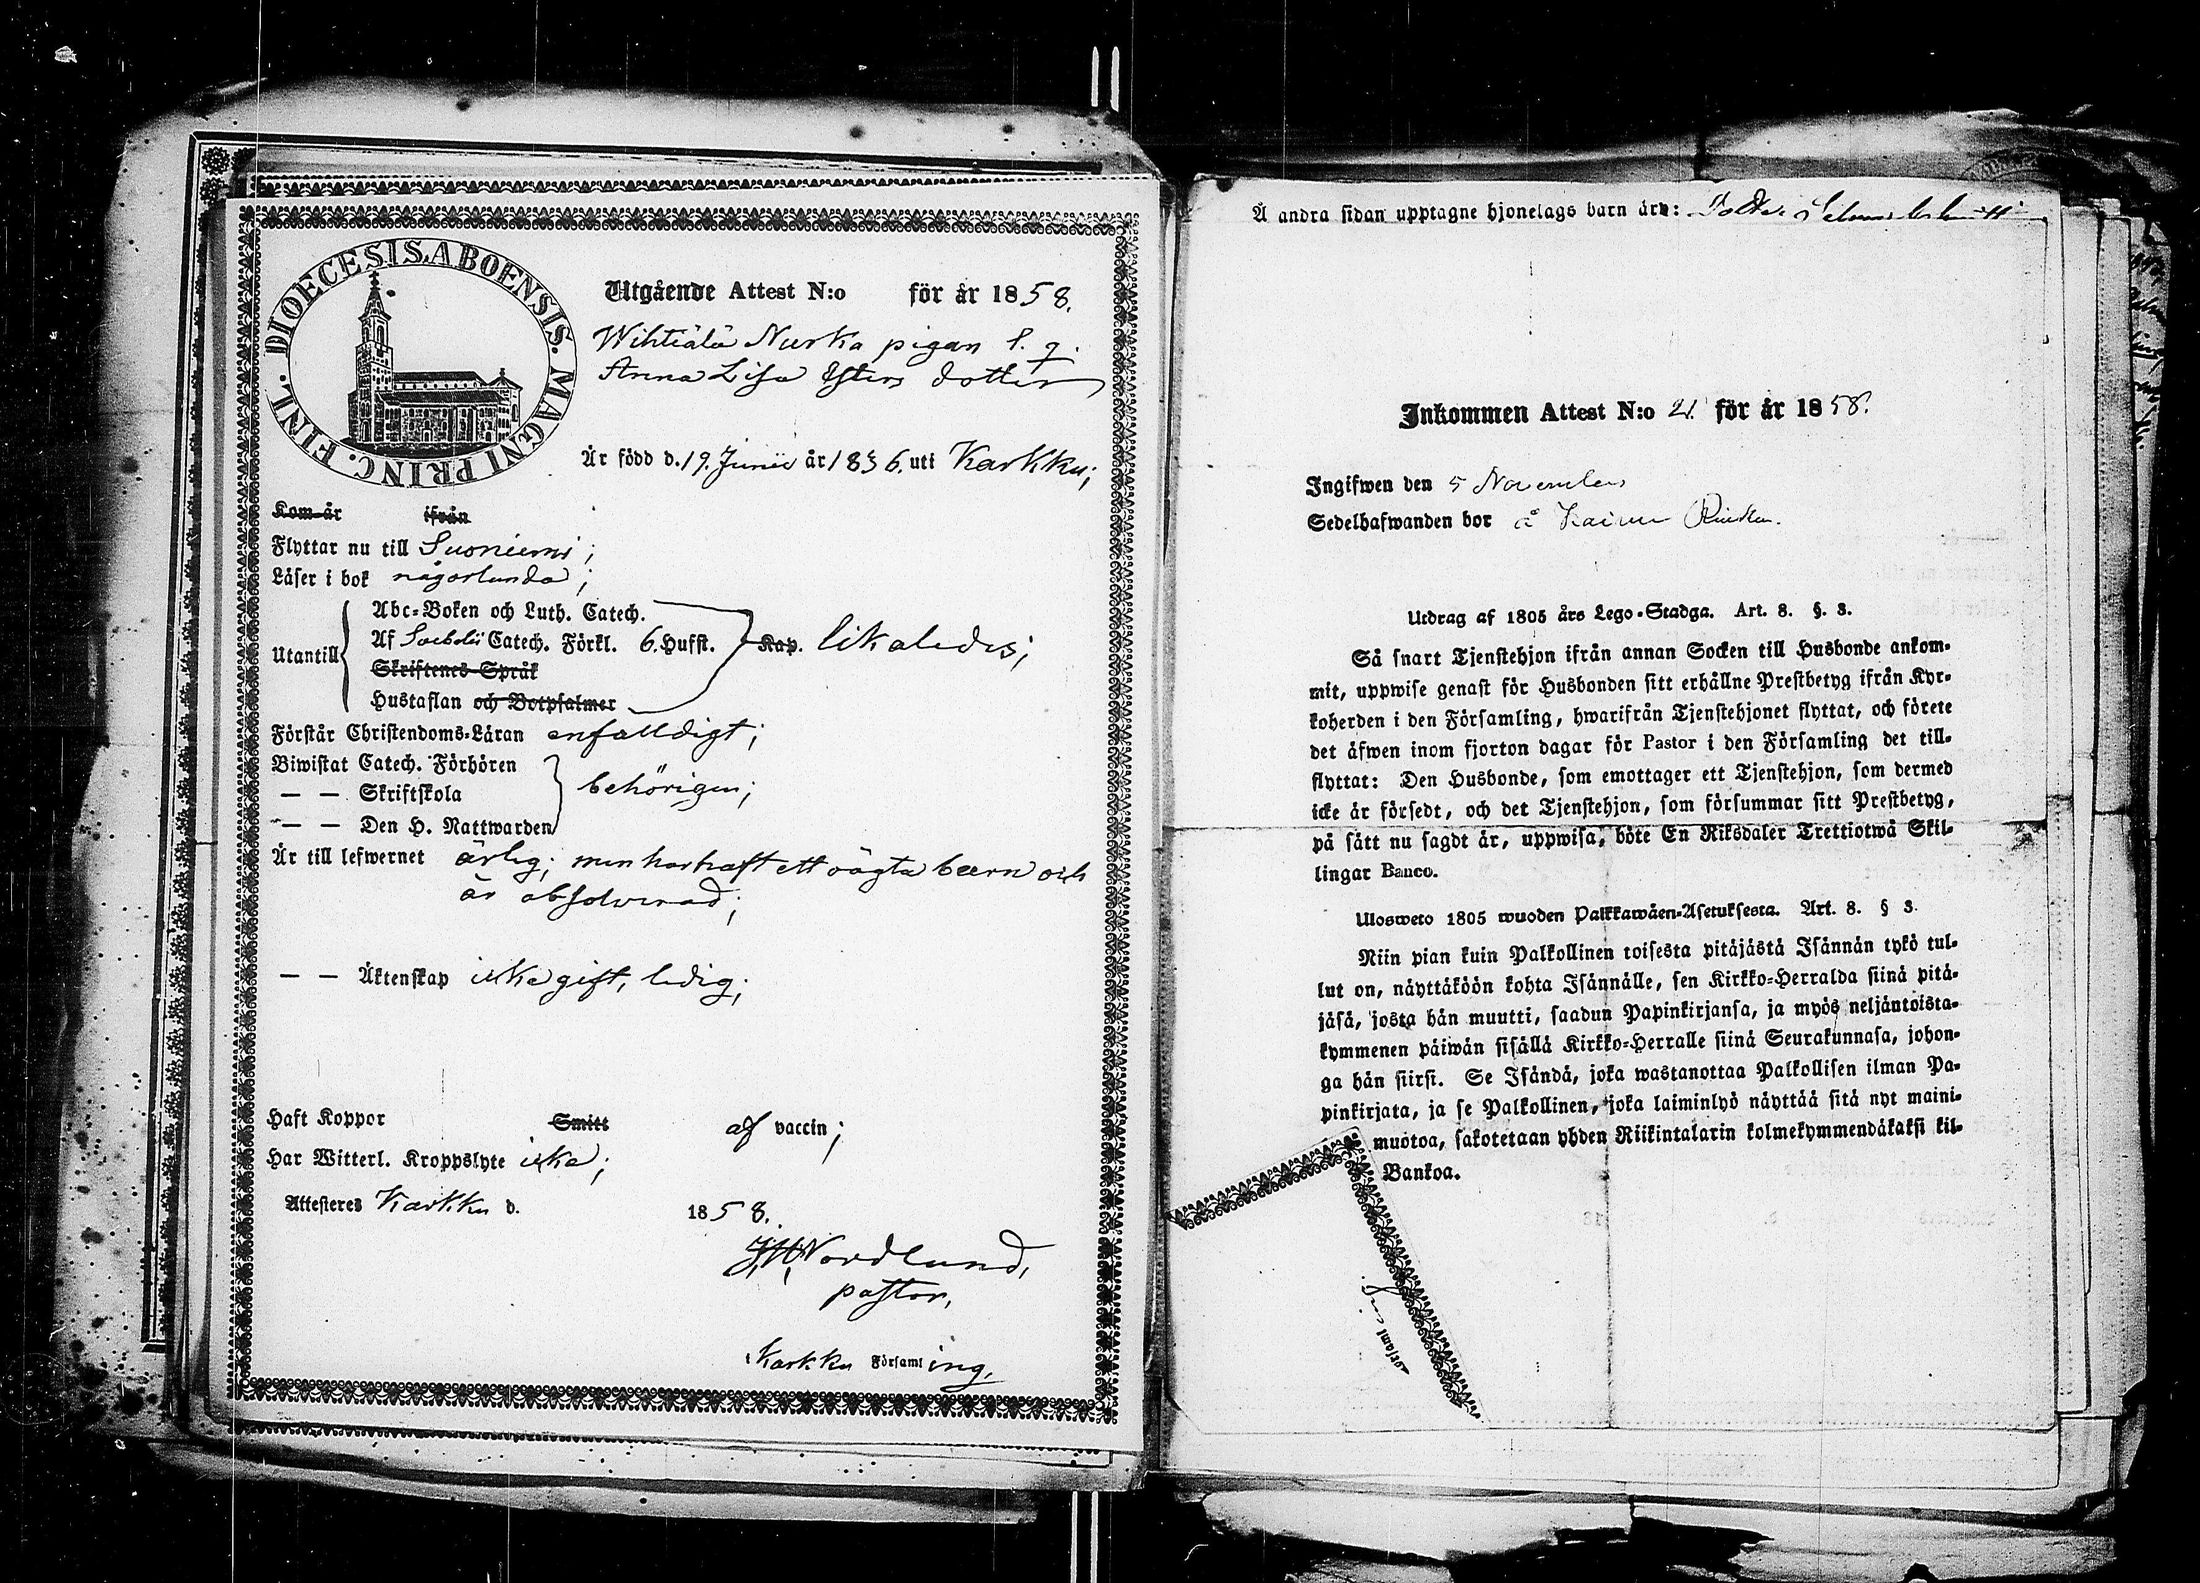 DIOECESIS ABOENSIS. MAGNI PRINC. FINL.
Utgående Attest N:o för år 1858.
Wihtiälä Nurka pigan l. q.
Anna Lisa Esters dotter
Är född d. 19. Junii år 1836. uti Karkku;
Kom år ifrån
Flyttar nu till Suoniemi;
Läser i bok någorlunda;
Utantill
Abc-Boken och Luth. Catech.
Af Svebelii Catech. Förkl. 6. Hufst. Kap. likaledes;
Skriftenes Språk
Hustaflan och Botpsalmer
Förstår Christendoms-Läran enfalldigt;
Biwistat Catech. Förhören
— — Skriftskola behörigen;
— — Den H. Nattwarden
Är till lefwernet ärlig; men har haft ett oägta barn och
är absolverad;
— — Äktenskap icke gift, ledig;
Haft Koppor Smitt af vaccin;
Har Witterl. Kroppslyte icke;
Attesteres Karkku d. 1858.
Nordlund,
pastor,
Karkku Församling,
Å andra sidan upptagne hjonelags barn äro:
Inkommen Attest N:o 21 för år 1858.
Ingifwen den 5 November
Sedelhafwanden bor å
Utdrag af 1805 års Lego-Stadga. Art. 8. §. 3.
Så snart Tjenstehjon ifrån annan Socken till Husbonde ankom-
mit, uppwise genast för Husbonden sitt erhållne Prestbetyg ifrån Kyr-
koherden i den Församling, hwarifrån Tjenstehjonet flyttat, och förete
det äfwen inom fjorton dagar för Pastor i den Församling det till-
flyttat: Den Husbonde, som emottager ett Tjenstehjon, som dermed
icke är försedt, och det Tjenstehjon, som försummar sitt Prestbetyg,
på sätt nu sagdt är, uppwisa, böte En Riksdaler Trettiotwå Skil-
lingar Banco.
Ulosweto 1805 wuoden Palkkawäen-Asetuksesta. Art. 8. § 3.
Niin pian kuin Palkollinen toisesta pitäjästä Isännän tykö tul-
lut on, näyttäköön kohta Isännälle, sen Kirkko-Herralda siinä pitä-
jäsä, josta hän muutti, saadun Papinkirjansa, ja myös neljäntoista-
kymmenen päiwän sisällä Kirkko-Herralle siinä Seurakunnasa, johon-
ga hän siirsi. Se Isändä, joka wastanottaa Palkollisen ilman Pa-
pinkirjata, ja se Palkollinen, joka laiminlyö näyttää sitä nyt maini-
muotoa, sakotetaan yhden Riikintalarin kolmekymmendäkaksi kil-
Bankoa.